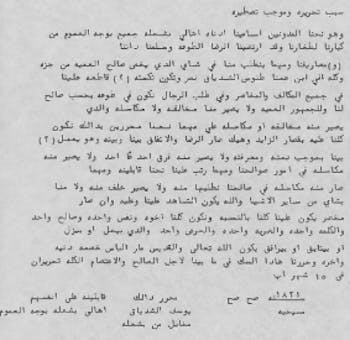 سبب تحريره وموجب تسطيره
وهو نحنا المدونين اسامينا ادناه اهالي بشعله جميع بوجه العموم من
كبارنا لصغارنا وقد ارتضينا الرضا الطوعه وسلمنا راننا
(و)مصاريفنا ومهما ينطلب منا في شاي الذي يقفي صالح العميه من جزه
وكله الي ابن عمنا طنوس الشدياق نمر وتكون نكمته (؟) قاطعه علينا
في جميع التكالف والمخاسر وفي طلب الرجال نكون في طوعه بحسب صالح
لنا وللجمهور العميه ولا يصير منا مخالفه ولا مكاسله والذي
يصير منه مخالفه او مكاسله على مهما نحنا محررين بدالك نكون
كلنا عليه بقصار الزايد وهيك صار الرضا والاتفاق بيننا وبينه وهو يعمل (؟)
بيننا بموجب نمته ومعرفته ولا يصير منه فرق احد عن احد ولا يصير منه
مكاسله في امور صوالحنا ومهما رتب علينا نحنا قابلينه ومهما
صار منه مكاسله في صالحنا تطلبها منه ولا يصير خلف منه ولا منا
بشاي من ساير الاشيا والله يكون الشاهد علينا وعليه وان صار
مخصر يكون علينا كلنا بالنسبه ونكون كلنا اخوه ونفس واحده وصالح واحد
والكلمه واحده والضربه واحده والغرض واحد والذي بيعمل او بينزل
او بيتايق او بيرافق يكون الله تعالى والقديس مار الياس خصمه دنيه
واخره وحررنا هاذا الصك في ما بيننا لاجل الصالح والاعتصام الكله تحريران
في ١٥ شهر اب
١٨٢١ صح صح
مسيحيه
محرر دالك
يوسف الشدياق
مقابل من بشعله
قابلينه على انفسهم
اهالي بشعله بوجه العموم